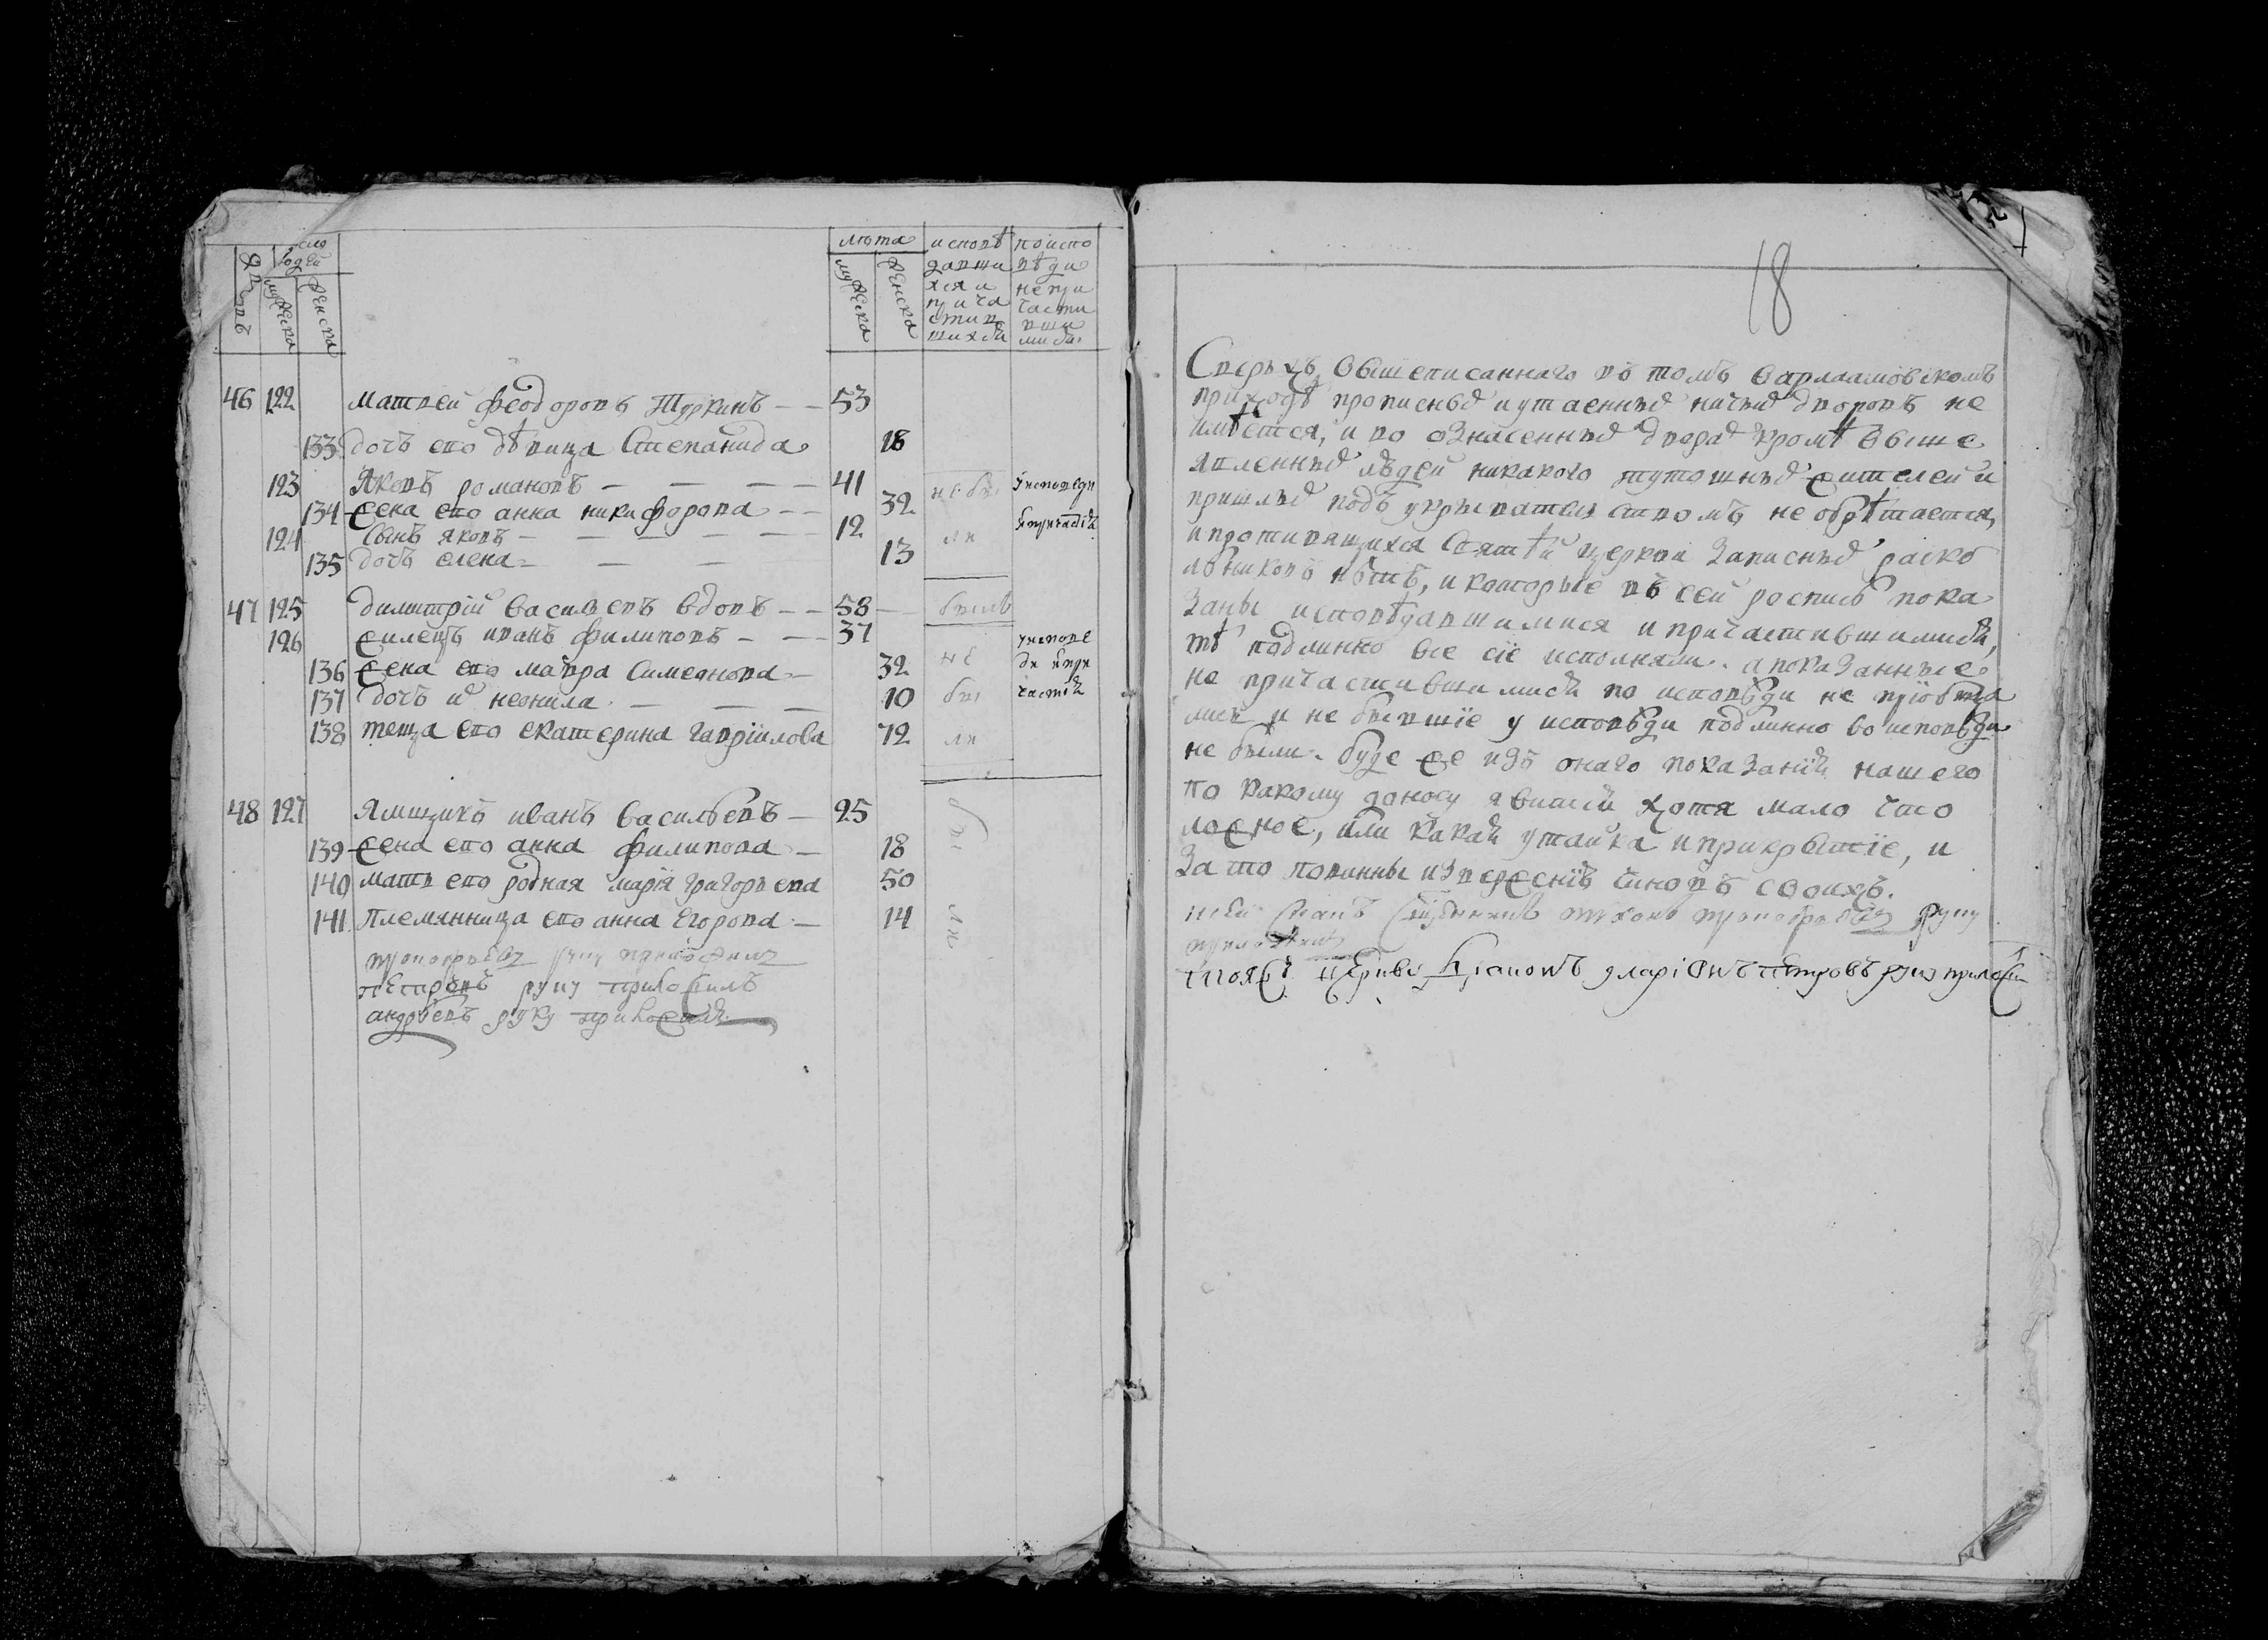 число
людей
дворовъ
мужеска
женска
лѣта
мужеска
женска
исповѣ
давши
хся и
прича
стив
шихся
по испо
вѣди
не при
части
вши
мися
46 122 матвей феодоровъ Туркинъ — — 53
133 дочь его дѣвица Степанида 18
123 Яковъ романовъ — — — — 41
134 жена его анна никифорова — — 32
124 сынъ яковъ — — — — — 12
135 дочь елена — — — 13
не бы
ли
у исповеди
47 125 димитрїй василевъ вдовъ — — 58 — былъ
126 жилецъ иванъ филиповъ — — 37
136 жена его мавра симеонова — 32
137 дочь их неонила — — — 10
138 теща его екатерина гаврїилова 72
не
бы
ли
у испове
ди
48 127 Ямщикъ иванъ василъевъ — 25
139 жена его анна филипова — 18
140 мать его родная марїя григорьева 50
141 племянница его анна егорова — 14
бы
ли
руку приложилъ
петровъ руку приложилъ
андрѣевъ руку приложилъ
18
Сверьхъ вышеписаннаго въ томъ варлаамовскомъ
приходѣ прописных и утаенных ничьих дворовъ не
имѣется, и во означенных дворах кромѣ выше
явленных людей никакого тутошных жителей и
пришлых подъ укрывателствомъ не обрѣтается,
и противящихся святѣй церкви записных раско
лниковъ нѣтъ, и которые въ сей росписѣ пока
заны исповѣдавшимися и причастившимися,
тѣ подлинно все сїе исполняли. а показанные
не причастившимися по исповѣди не прїобща
лись и не бывшїе у исповѣди подлинно во исповѣди
не были. буде же изъ онаго показанїя нашего
по какому доносу явится хотя мало что
ложное, или какая утайка и прикрытїе, и
за то повинны изверженїя чиновъ своихъ.
руку
тояж церкви петровъ руку приложи